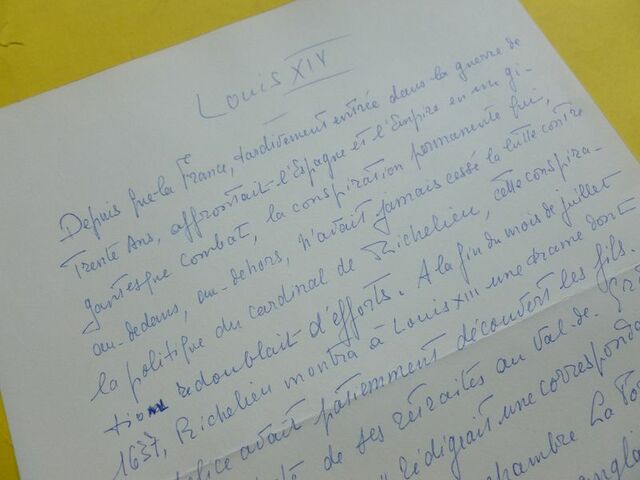 Louis XIV
Depuis que la France, tardivement entrée dans la guerre de
Trente Ans, affrontait l'Espagne et l'Empire en un gi-
gantesque combat, la conspiration permanente qui,
au-dedans, au-dehors, n'avait jamais cessé la lutte contre
la politique du cardinal de Richelieu, cette conspira-
tion redoublait d'efforts. A la fin du mois de juillet
1637, Richelieu montra à Louis XIII une trame dont
avait patiemment découvert les fils.
de ses retraites au Val-de-Grâ
rédigeait une corresponda
chambre La Po